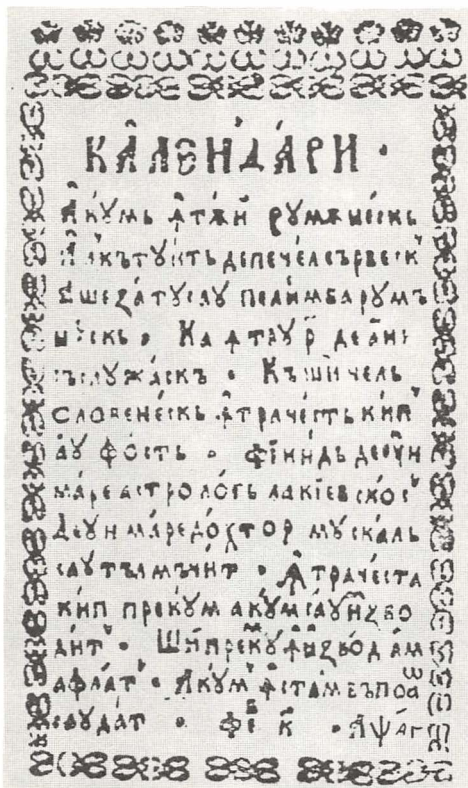 КАЛЕНДАРИ ·
Акумь ꙟтѫй румѫнескь
Алкътуить депечел сърбеск
Ашезатусау пелимба румъ
нѣскъ · Ка ꙟтру р҃ деани
съслужаскъ · Къшичель
словенескь ꙟтрачестъ кип
ау фость · фїиндь деоун
маре астрологь лакїевскос
Деун маредохтор мускаль
саутълмъчит · ꙟтрачеста
кип прекум акумсауизво
дит · Шипрекум ꙟизвод ам
афлат · Акум ꙟстамбъ
саудат · фев к · аѱлг